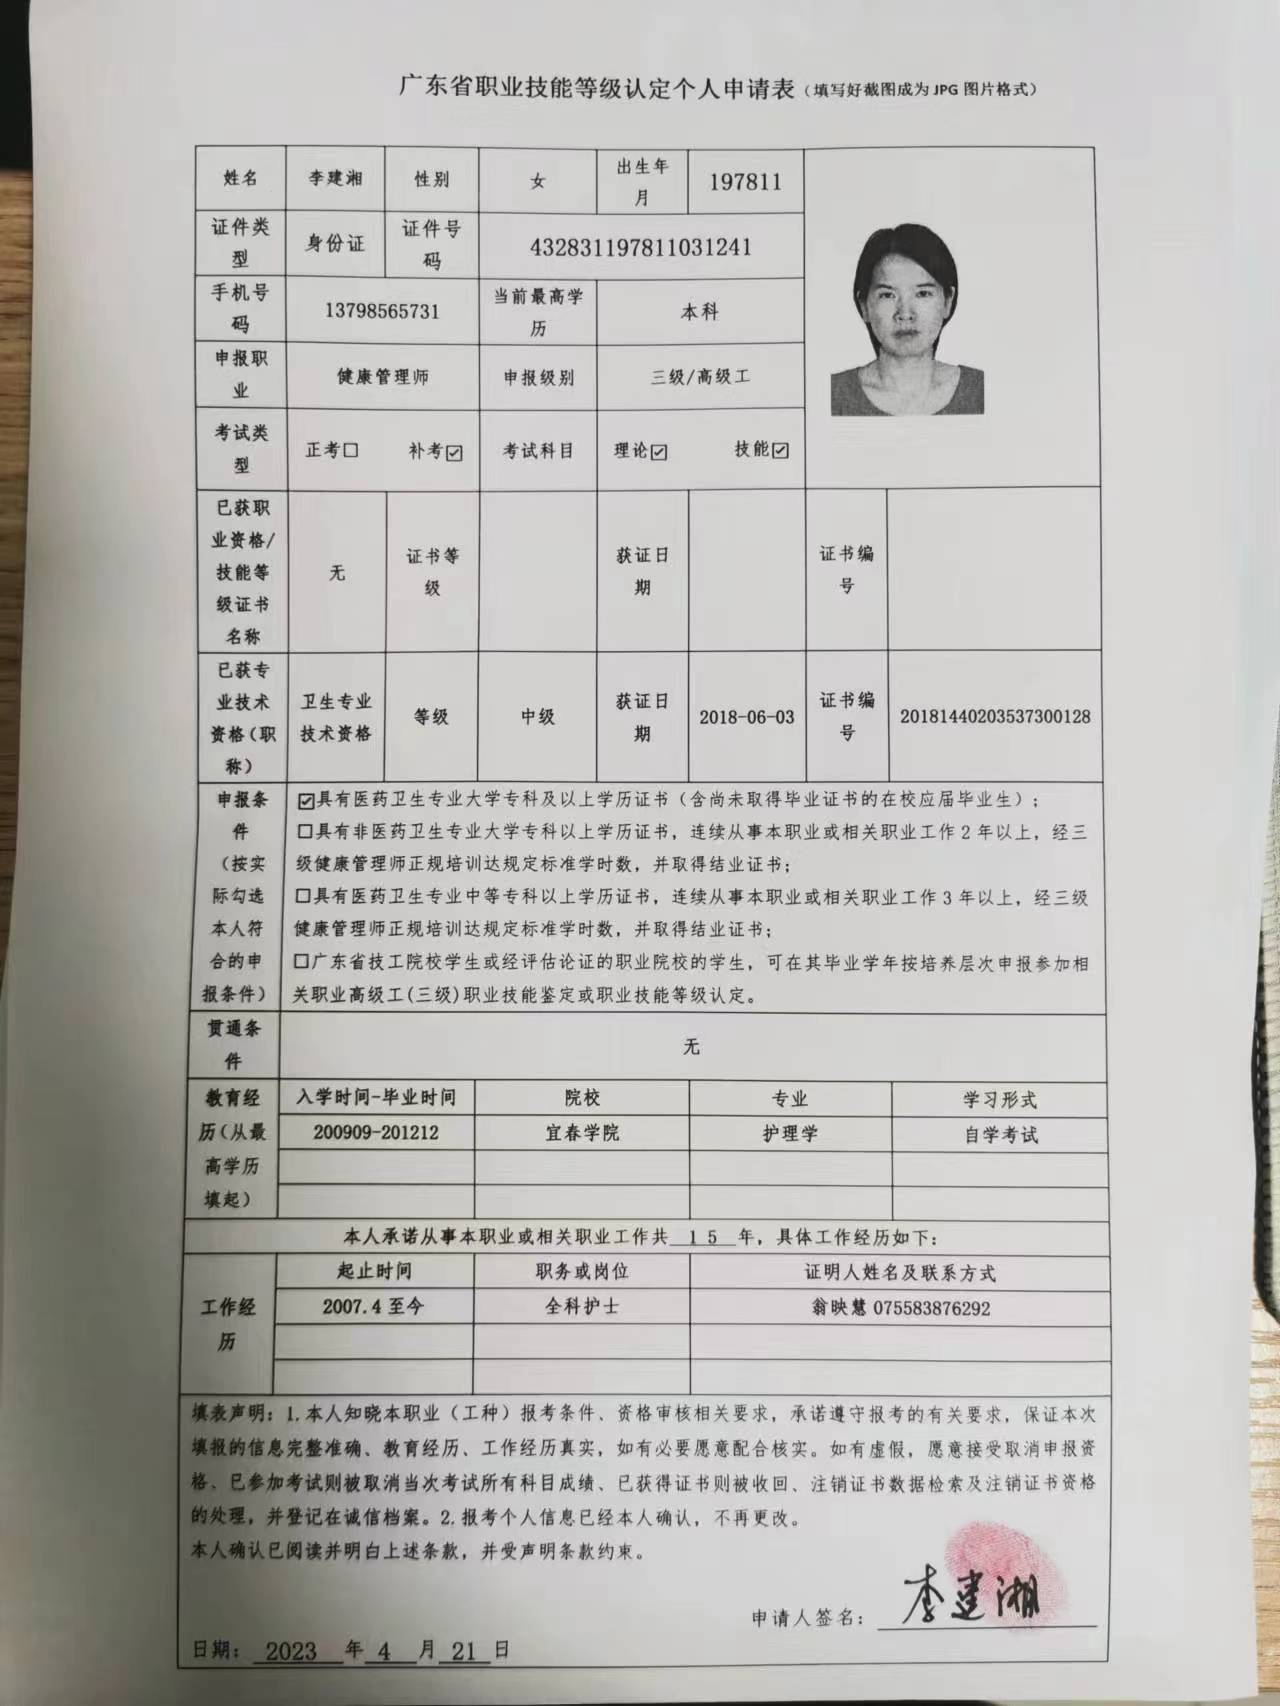 广东省职业技能等级认定个人申请表（填写好截图成为 JPG 图片格式）
姓名 李建湘 性别 女 出生年月 197811
证件类型 身份证 证件号码 432831197811031241
手机号码 13798565731 当前最高学历 本科
申报职业 健康管理师 申报级别 三级/高级工
考试类型 正考☐ 补考☑ 考试科目 理论☑ 技能☑
已获职业资格/技能等级证书名称 无 证书等级 获证日期 证书编号
已获专业技术资格(职称) 卫生专业技术资格 等级 中级 获证日期 2018-06-03 证书编号 20181440203537300128
申报条件（按实际勾选本人符合的申报条件）
☑具有医药卫生专业大学专科及以上学历证书（含尚未取得毕业证书的在校应届毕业生）；
☐具有非医药卫生专业大学专科以上学历证书，连续从事本职业或相关职业工作2年以上，经三
级健康管理师正规培训达规定标准学时数，并取得结业证书；
☐具有医药卫生专业中等专科以上学历证书，连续从事本职业或相关职业工作3年以上，经三级
健康管理师正规培训达规定标准学时数，并取得结业证书；
☐广东省技工院校学生或经评估论证的职业院校的学生，可在其毕业学年按培养层次申报参加相
关职业高级工(三级)职业技能鉴定或职业技能等级认定。
贯通条件 无
教育经历(从最高学历填起) 入学时间-毕业时间 院校 专业 学习形式
200909-201212 宜春学院 护理学 自学考试
本人承诺从事本职业或相关职业工作共 15 年，具体工作经历如下：
工作经历 起止时间 职务或岗位 证明人姓名及联系方式
2007.4至今 全科护士 翁映慧 075583876292
填表声明：1.本人知晓本职业（工种）报考条件、资格审核相关要求，承诺遵守报考的有关要求，保证本次
填报的信息完整准确、教育经历、工作经历真实，如有必要愿意配合核实。如有虚假，愿意接受取消申报资
格、已参加考试则被取消当次考试所有科目成绩、已获得证书则被收回、注销证书数据检索及注销证书资格
的处理，并登记在诚信档案。2.报考个人信息已经本人确认，不再更改。
本人确认已阅读并明白上述条款，并受声明条款约束。
申请人签名： 李建湘
日期： 2023 年 4 月 21 日